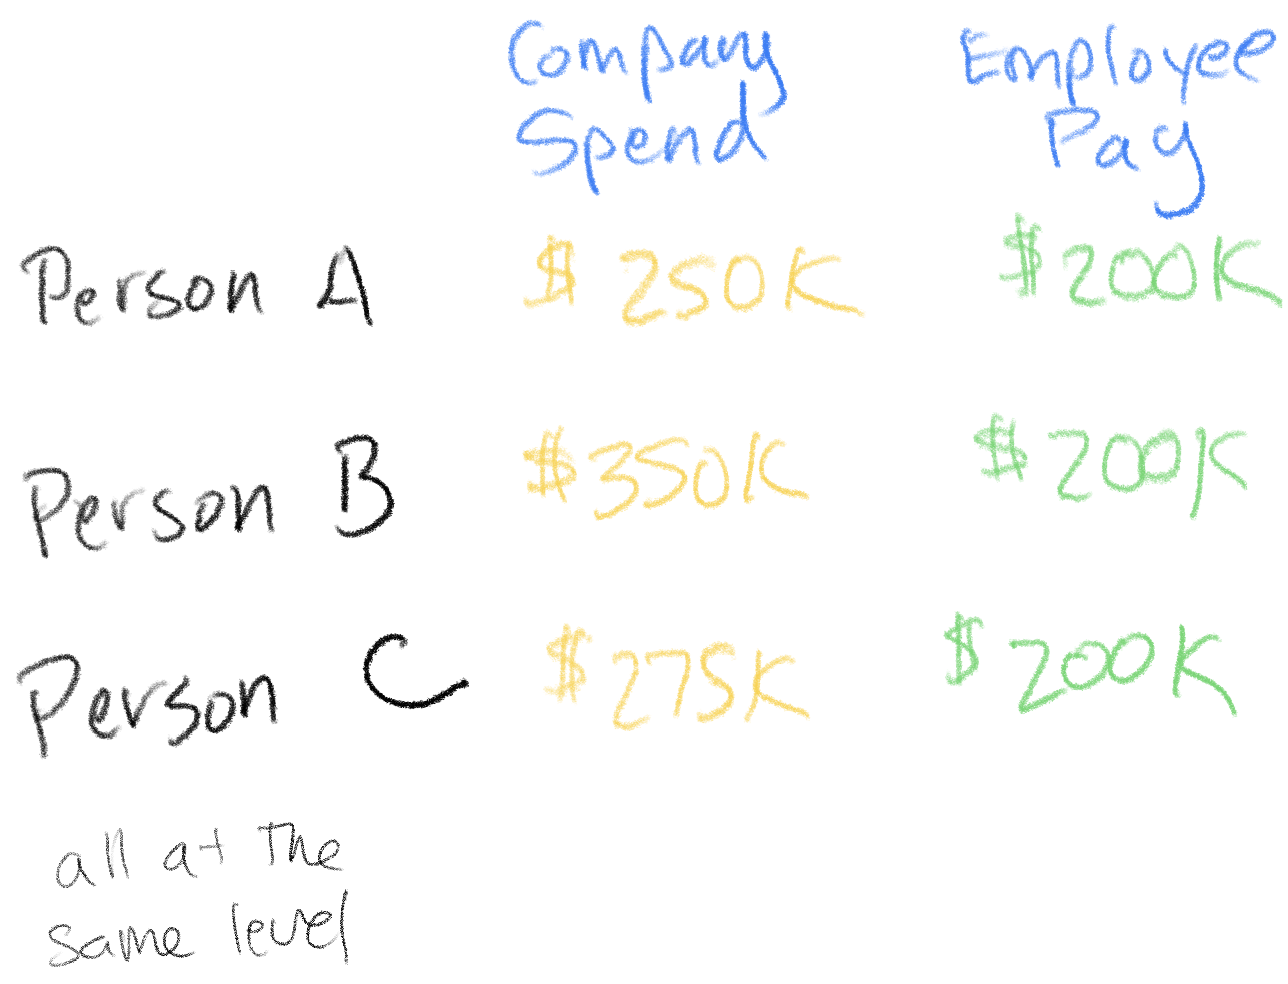 Company Spend
Employee Pay
Person A $250K $200K
Person B $350K $200K
Person C $275K $200K
all at the
same level